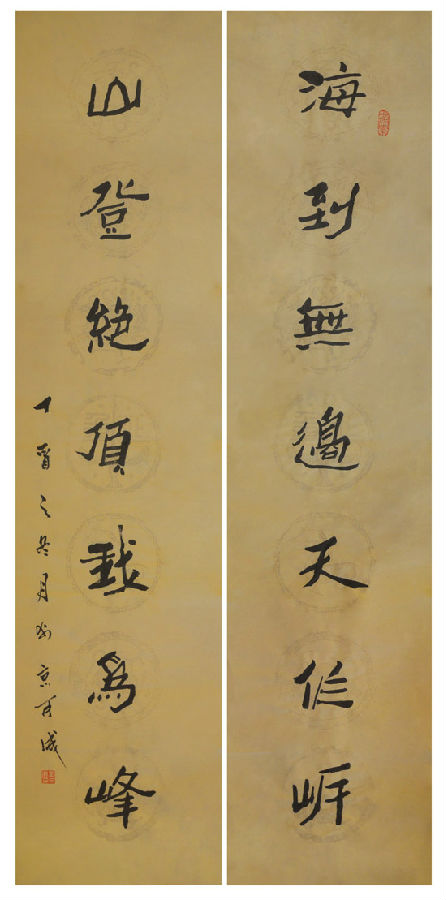 海到無邊天作岸
山登絶頂我爲峰
丁酉之冬月於京